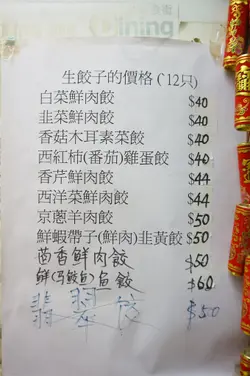 生餃子的價格(12只)
白菜鮮肉餃 $40
韭菜鮮肉餃 $40
香菇木耳素菜餃 $40
西紅柿(番茄)雞蛋餃 $40
香芹鮮肉餃 $44
西洋菜鮮肉餃 $44
京蔥羊肉餃 $50
鮮蝦帶子(鮮肉)韭黃餃 $50
茴香鮮肉餃 $50
鮮(馬鮫魚)魚餃 $60
翡翠餃 $50